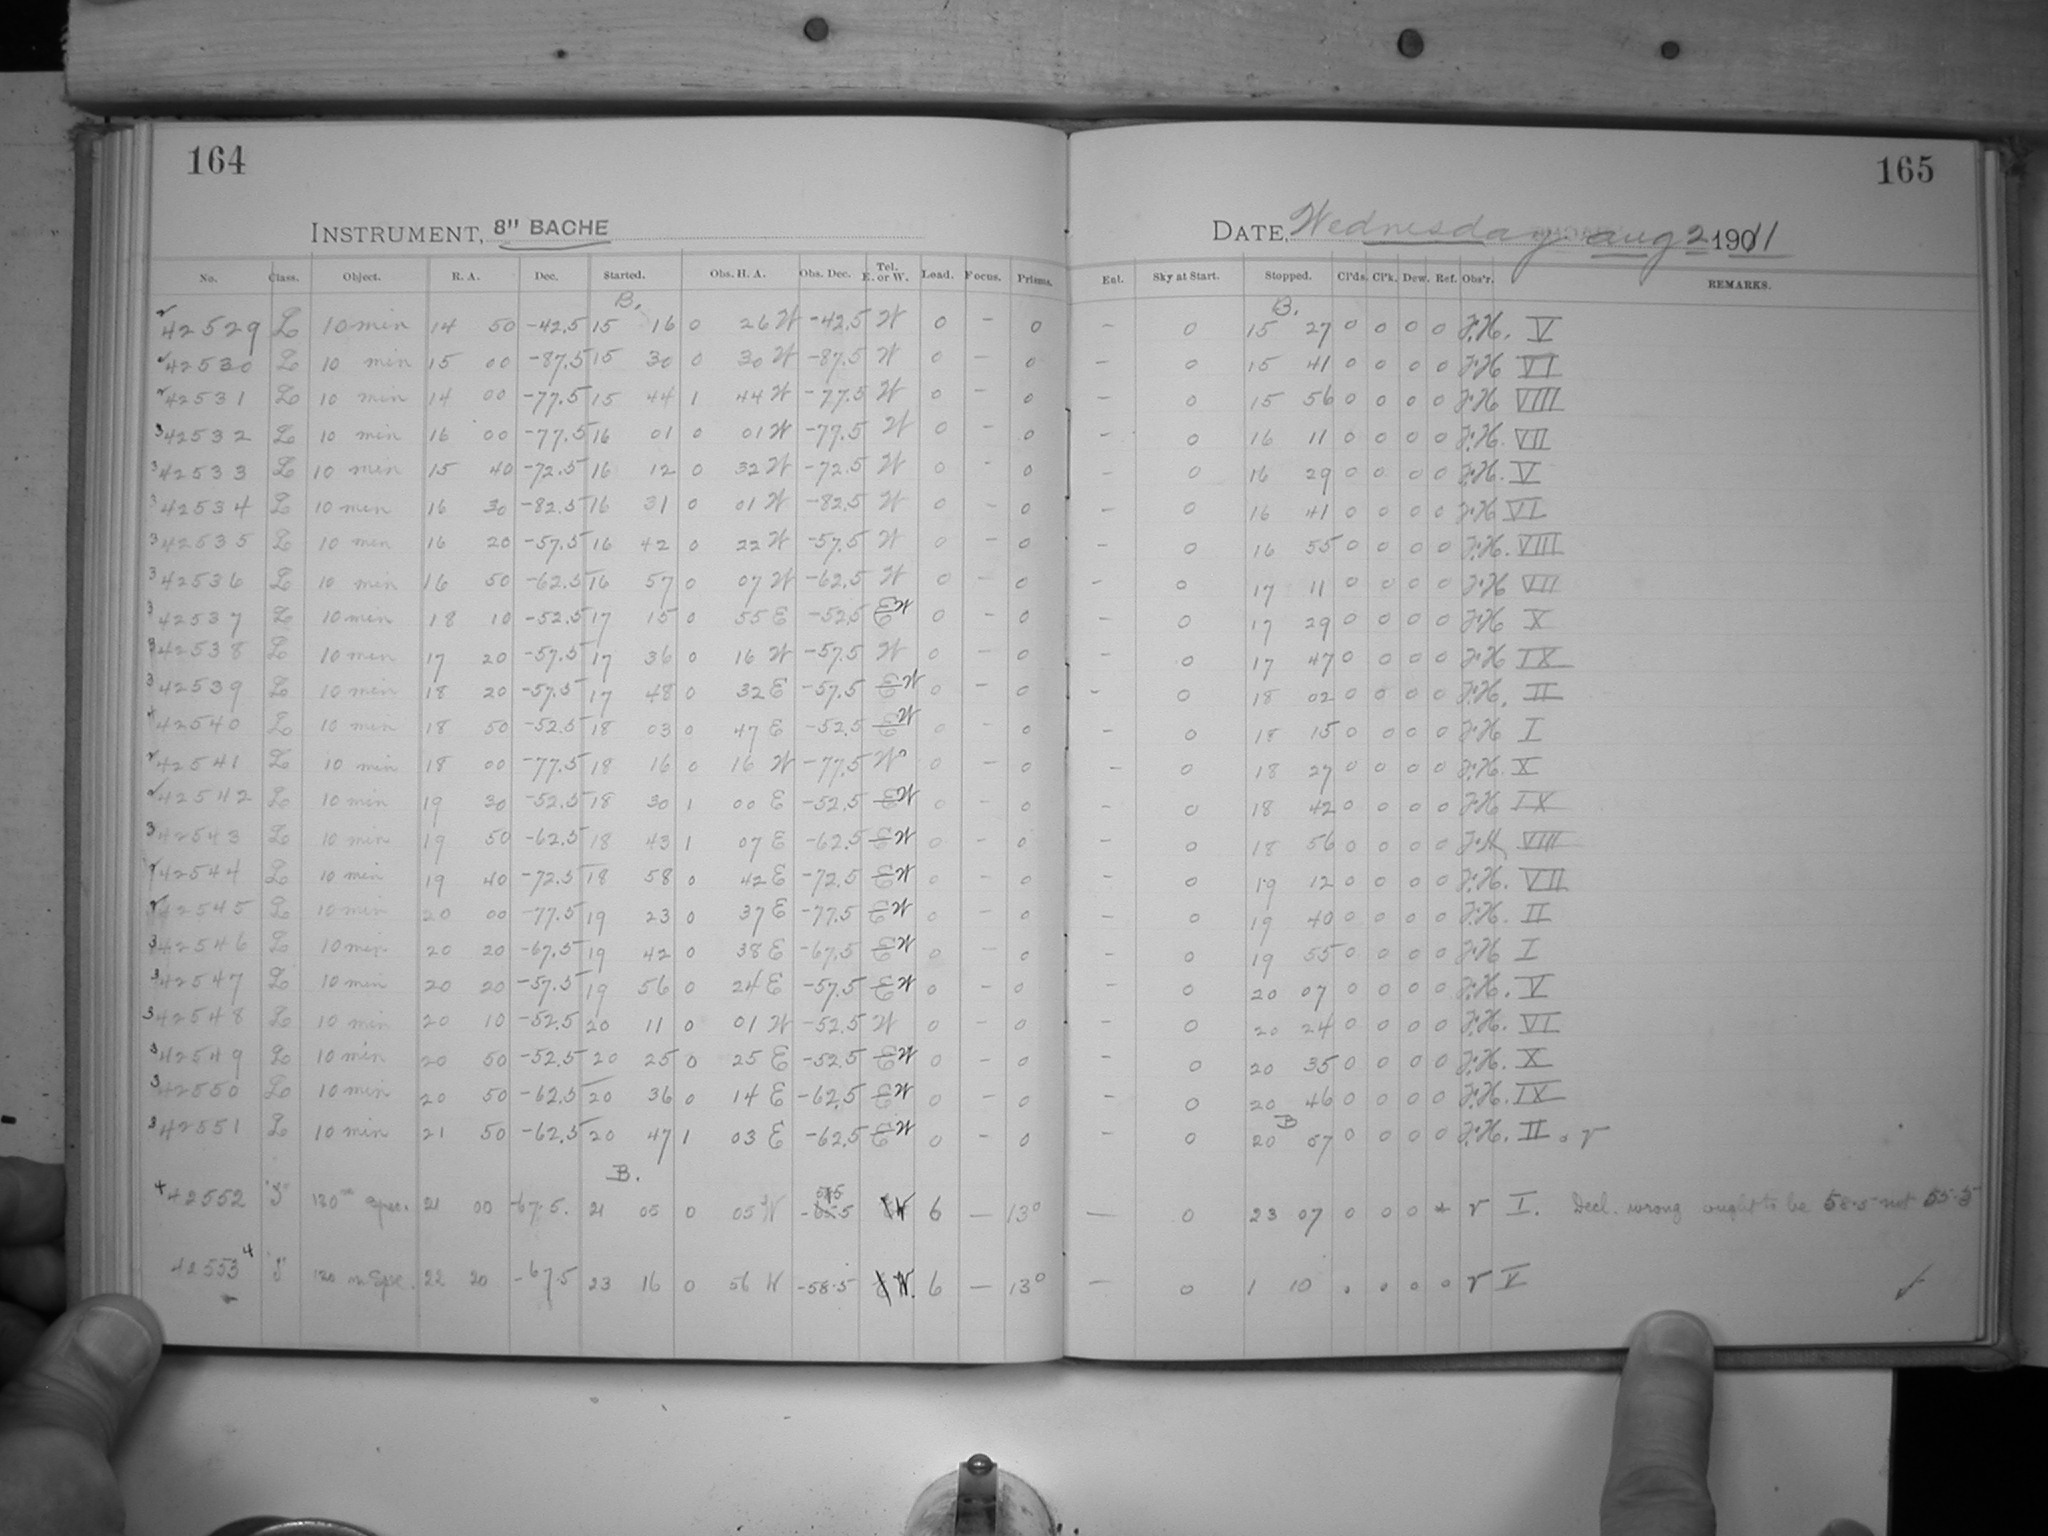 164
165
INSTRUMENT, 8" BACHE
DATE, Wednesday Aug 2 1911
No. Class. Object. R. A. Dec. Started. Obs. H. A. Obs. Dec. Tel. E. or W. Load. Focus. Prisms. Enl. Sky at Start. Stopped. Cl'ds. Cl'k. Dew. Ref. Obs'r. REMARKS.
B. B.
2 42529 L 10 min 14 50 -42.5 15 16 0 26 W -42.5 W 0 - 0 - 0 15 27 0 0 0 0 F.H. V
2 42530 L 10 min 15 00 -87.5 15 30 0 30 W -87.5 W 0 - 0 - 0 15 41 0 0 0 0 F.H VI
2 42531 L 10 min 14 00 -77.5 15 44 1 44 W -77.5 W 0 - 0 - 0 15 56 0 0 0 0 F.H VIII
3 42532 L 10 min 16 00 -77.5 16 01 0 01 W -77.5 W 0 - 0 - 0 16 11 0 0 0 0 F.H. VII
3 42533 L 10 min 15 40 -72.5 16 12 0 32 W -72.5 W 0 - 0 - 0 16 29 0 0 0 0 F.H. V
3 42534 L 10 min 16 30 -82.5 16 31 0 01 W -82.5 W 0 - 0 - 0 16 41 0 0 0 0 F.H VI
3 42535 L 10 min 16 20 -57.5 16 42 0 22 W -57.5 W 0 - 0 - 0 16 55 0 0 0 0 F.H. VIII
3 42536 L 10 min 16 50 -62.5 16 57 0 07 W -62.5 W 0 - 0 - 0 17 11 0 0 0 0 F.H VII
3 42537 L 10 min 18 10 -52.5 17 15 0 55 E -52.5 E W 0 - 0 - 0 17 29 0 0 0 0 F.H X
3 42538 L 10 min 17 20 -57.5 17 36 0 16 W -57.5 W 0 - 0 - 0 17 47 0 0 0 0 F.H IX
3 42539 L 10 min 18 20 -57.5 17 48 0 32 E -57.5 E W 0 - 0 - 0 18 02 0 0 0 0 F.H. II
4 42540 L 10 min 18 50 -52.5 18 03 0 47 E -52.5 E W 0 - 0 - 0 18 15 0 0 0 0 F.H I
2 42541 L 10 min 18 00 -77.5 18 16 0 16 W -77.5 W 0 - 0 - 0 18 27 0 0 0 0 F.H. X
2 42542 L 10 min 19 30 -52.5 18 30 1 00 E -52.5 E W 0 - 0 - 0 18 42 0 0 0 0 F.H IX
3 42543 L 10 min 19 50 -62.5 18 43 1 07 E -62.5 E W 0 - 0 - 0 18 56 0 0 0 0 F.H. VIII
42544 L 10 min 19 40 -72.5 18 58 0 42 E -72.5 E W 0 - 0 - 0 19 12 0 0 0 0 F.H. VII
42545 L 10 min 20 00 -77.5 19 23 0 37 E -77.5 E W 0 - 0 - 0 19 40 0 0 0 0 F.H. II
3 42546 L 10 min 20 20 -67.5 19 42 0 38 E -67.5 E W 0 - 0 - 0 19 55 0 0 0 0 F.H I
3 42547 L 10 min 20 20 -57.5 19 56 0 24 E -57.5 E W 0 - 0 - 0 20 07 0 0 0 0 F.H. V
3 42548 L 10 min 20 10 -52.5 20 11 0 01 W -52.5 W 0 - 0 - 0 20 24 0 0 0 0 F.H. VI
3 42549 L 10 min 20 50 -52.5 20 25 0 25 E -52.5 E W 0 - 0 - 0 20 35 0 0 0 0 F.H. X
3 42550 L 10 min 20 50 -62.5 20 36 0 14 E -62.5 E W 0 - 0 - 0 20 46 0 0 0 0 F.H. IX
3 42551 L 10 min 21 50 -62.5 20 47 1 03 E -62.5 E W 0 - 0 - 0 20 57 0 0 0 0 F.H. II
B. B
4 42552 "S" 120 m Spec. 21 00 -67.5. 21 05 0 05 W W 6 - 13° - 0 23 07 0 0 0 r I. Decl. wrong ought to be 58.5 not 55.5
42553 4 "S" 120 m Spec. 22 20 -67.5 23 16 0 56 W -58.5 W. 6 - 13° - 0 1 10 0 0 0 0 r V